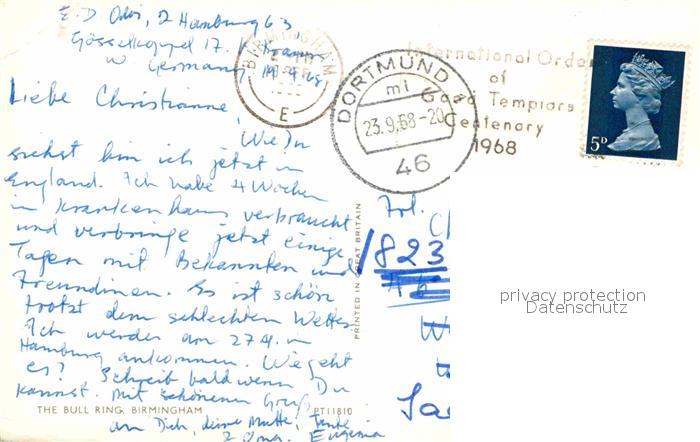 2 Hamburg 63
17.
W Germany
BIRMINGHAM
E
DORTMUND
mi
23.9.68-20
46
International Order
of
Good Templars
Centenary
1968
5D
Liebe Christianne,
Wie Du
siehst bin ich jetzt in
England. Ich habe 4 Wochen
in Krankenhaus verbraucht
und verbringe jetzt einige
Tagen mit Bekannten und
Freundinen. Es ist schön
trotst dem schlechten Wetter
Ich werder am 27 4. in
Hamburg ankommen. Wie geht
es? Schreib bald wenn Du
kannst. Mit schönenen Gruß
an Dich, deine Mutter, Tante
Eugenia
THE BULL RING, BIRMINGHAM
PT11810
PRINTED IN GREAT BRITAIN
Frl.
823
privacy protection
Datenschutz